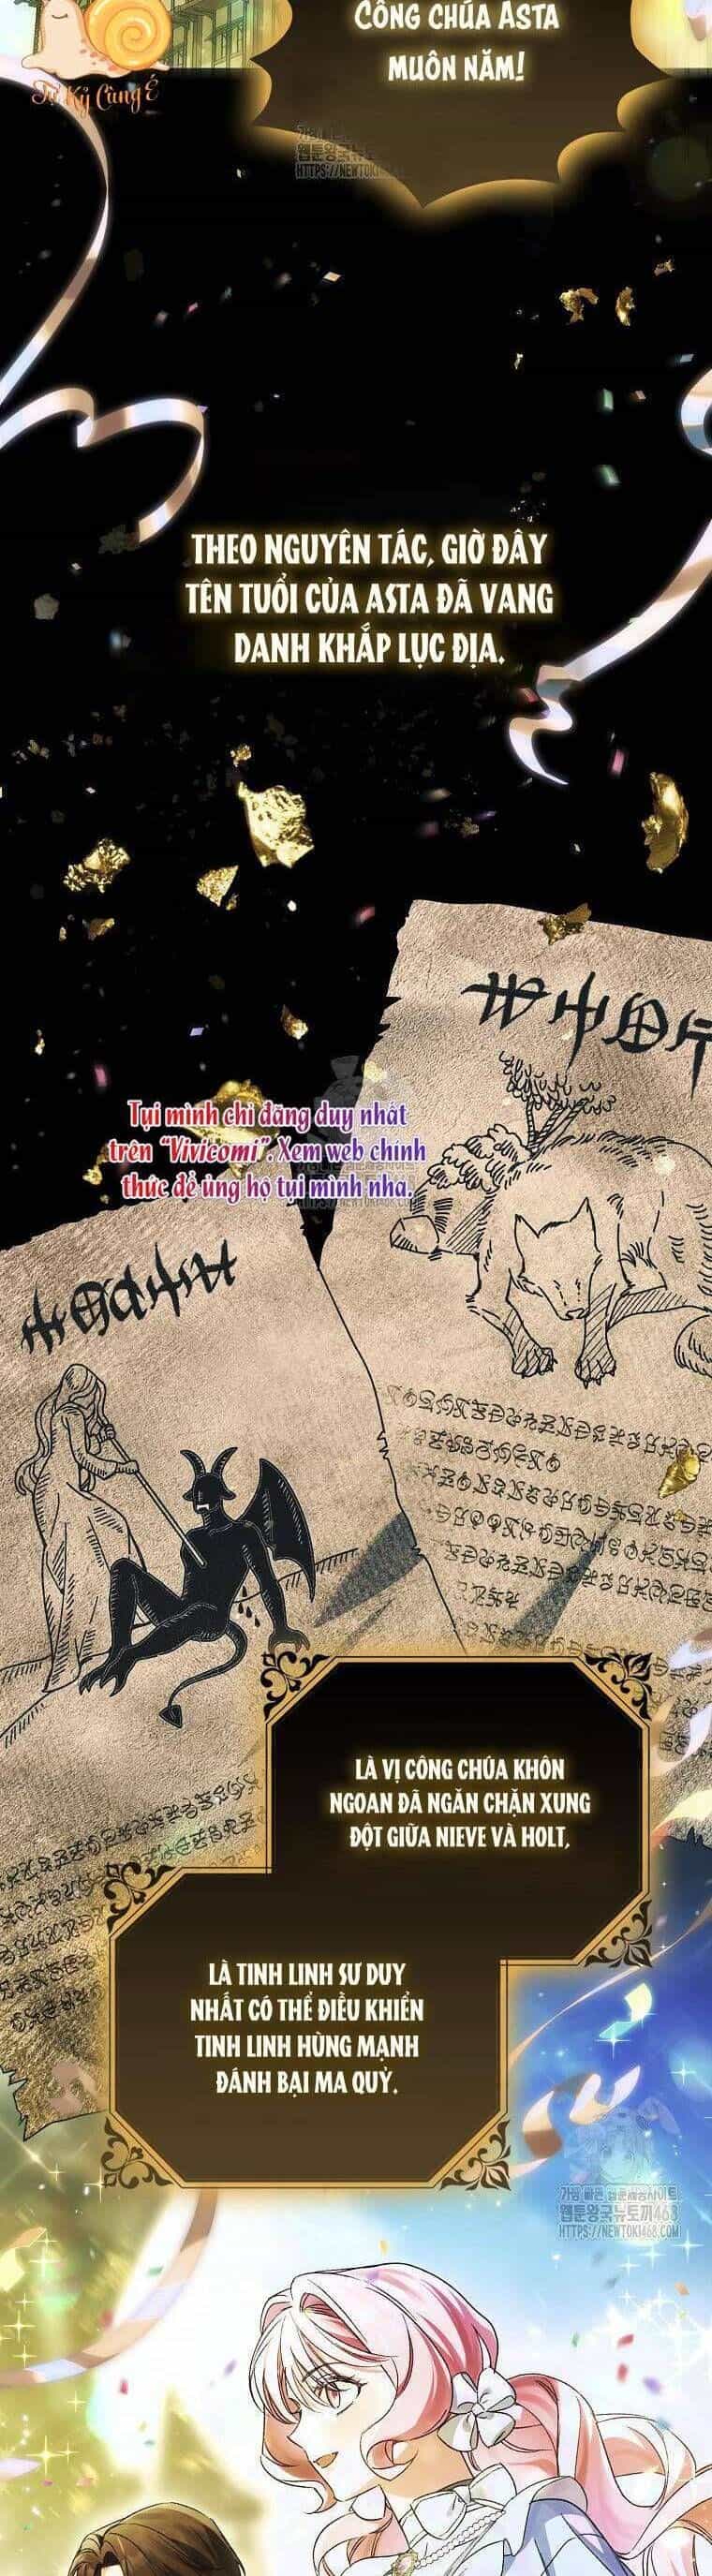 CÔNG CHÚA ASTA
MUÔN NĂM!
Tự Kỷ Cùng É
웹툰왕국뉴토끼
HTTPS://NEWTOKI
THEO NGUYÊN TÁC, GIỜ ĐÂY
TÊN TUỔI CỦA ASTA ĐÃ VANG
DANH KHẮP LỤC ĐỊA.
Tụi mình chỉ đăng duy nhất
trên "Vivicomi". Xem web chính
thức để ủng hộ tụi mình nha.
LÀ VỊ CÔNG CHÚA KHÔN
NGOAN ĐÃ NGĂN CHẶN XUNG
ĐỘT GIỮA NIEVE VÀ HOLT,
LÀ TINH LINH SƯ DUY
NHẤT CÓ THỂ ĐIỀU KHIỂN
TINH LINH HÙNG MẠNH
ĐÁNH BẠI MA QUỶ.
가장 빠른 웹툰제공사이트
웹툰왕국뉴토끼468
HTTPS://NEWTOKI468.COM